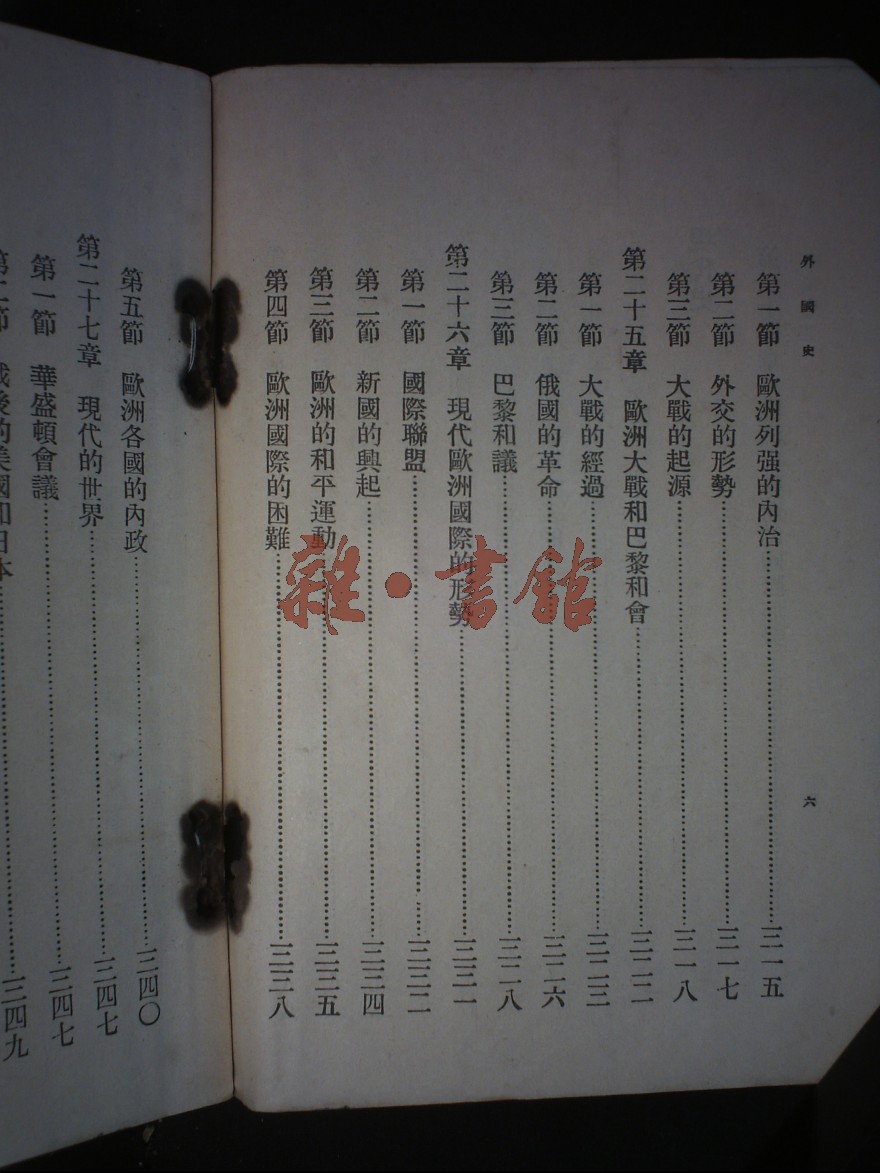 外國史 六
第一節 歐洲列强的內治……三一五
第二節 外交的形勢……三一七
第三節 大戰的起源……三一八
第二十五章 歐洲大戰和巴黎和會……三二二
第一節 大戰的經過……三二三
第二節 俄國的革命……三二六
第三節 巴黎和議……三二八
第二十六章 現代歐洲國際的形勢……三三一
第一節 國際聯盟……三三二
第二節 新國的興起……三三四
第三節 歐洲的和平運動……三三五
第四節 歐洲國際的困難……三三八
第五節 歐洲各國的內政……三四〇
第二十七章 現代的世界……三四七
第一節 華盛頓會議……三四七
第二節 戰後的美國和日本……三四九
雜·書館